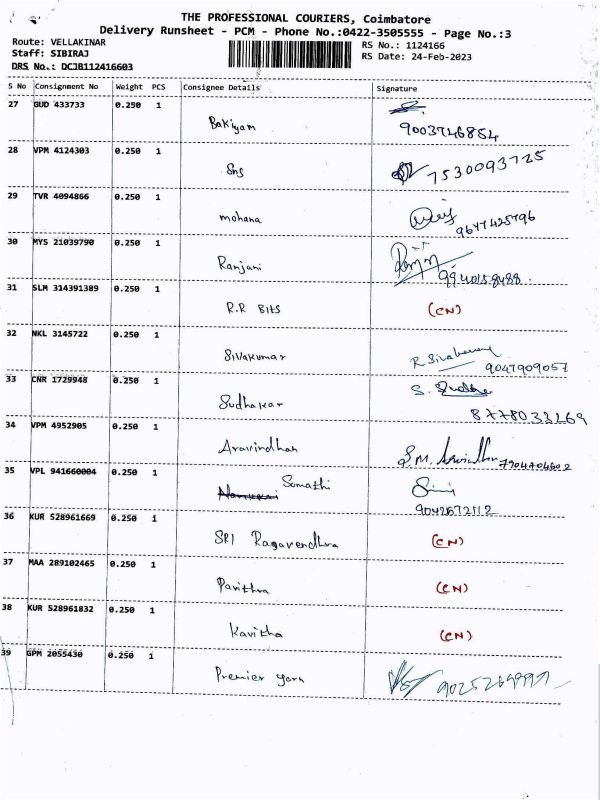 THE PROFESSIONAL COURIERS, Coimbatore
Delivery Runsheet - PCM - Phone No.:0422-3505555 - Page No.:3
Route: VELLAKINAR
Staff: SIBIRAJ
DRS No.: DCJB112416603
RS No.: 1124166
RS Date: 24-Feb-2023
S No Consignment No Weight PCS Consignee Details Signature
27 GUD 433733 0.250 1
Bakiyam 9003746854
28 VPM 4124303 0.250 1
Sns 7530093725
29 TVR 4094866 0.250 1
mohana 9677425796
30 MYS 21039790 0.250 1
Ranjani 9940158488
31 SLM 314391389 0.250 1
R.R Bits (CN)
32 NKL 3145722 0.250 1
Sivakumar 9047909057
33 CNR 1729948 0.250 1
Sudhakar 8778033169
34 VPM 4952905 0.250 1
Aravindhan
35 VPL 941660004 0.250 1
Sumathi
9042672112
36 KUR 528961669 0.250 1
SRI Ragavendhra (CN)
37 MAA 289102465 0.250 1
Pavithra (CN)
38 KUR 528961832 0.250 1
Kavitha (CN)
39 GPM 2055430 0.250 1
Premier yarn